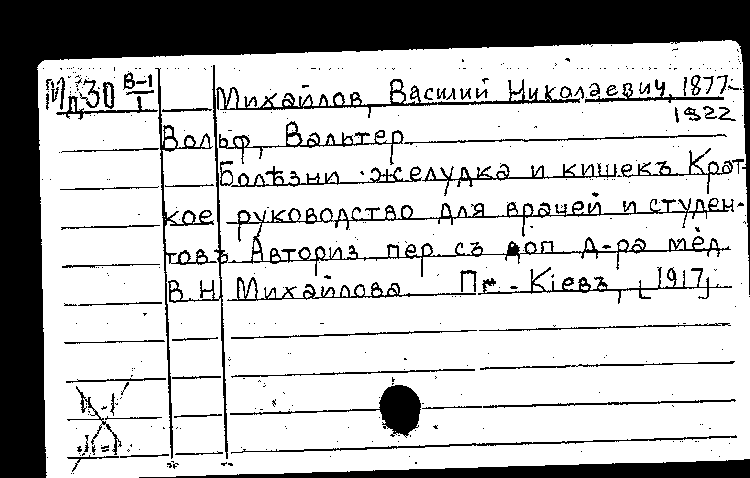 Мд30 В-1/1 Михайлов, Василий Николаевич, 1877-
1922
Вольф, Вальтер
Болѣзни желудка и кишекъ Крат-
кое руководство для врачей и студен-
товъ. Авториз. пер. съ доп д-ра мед.
В.Н. Михайлова. Пг. - Кіевъ, [1917]